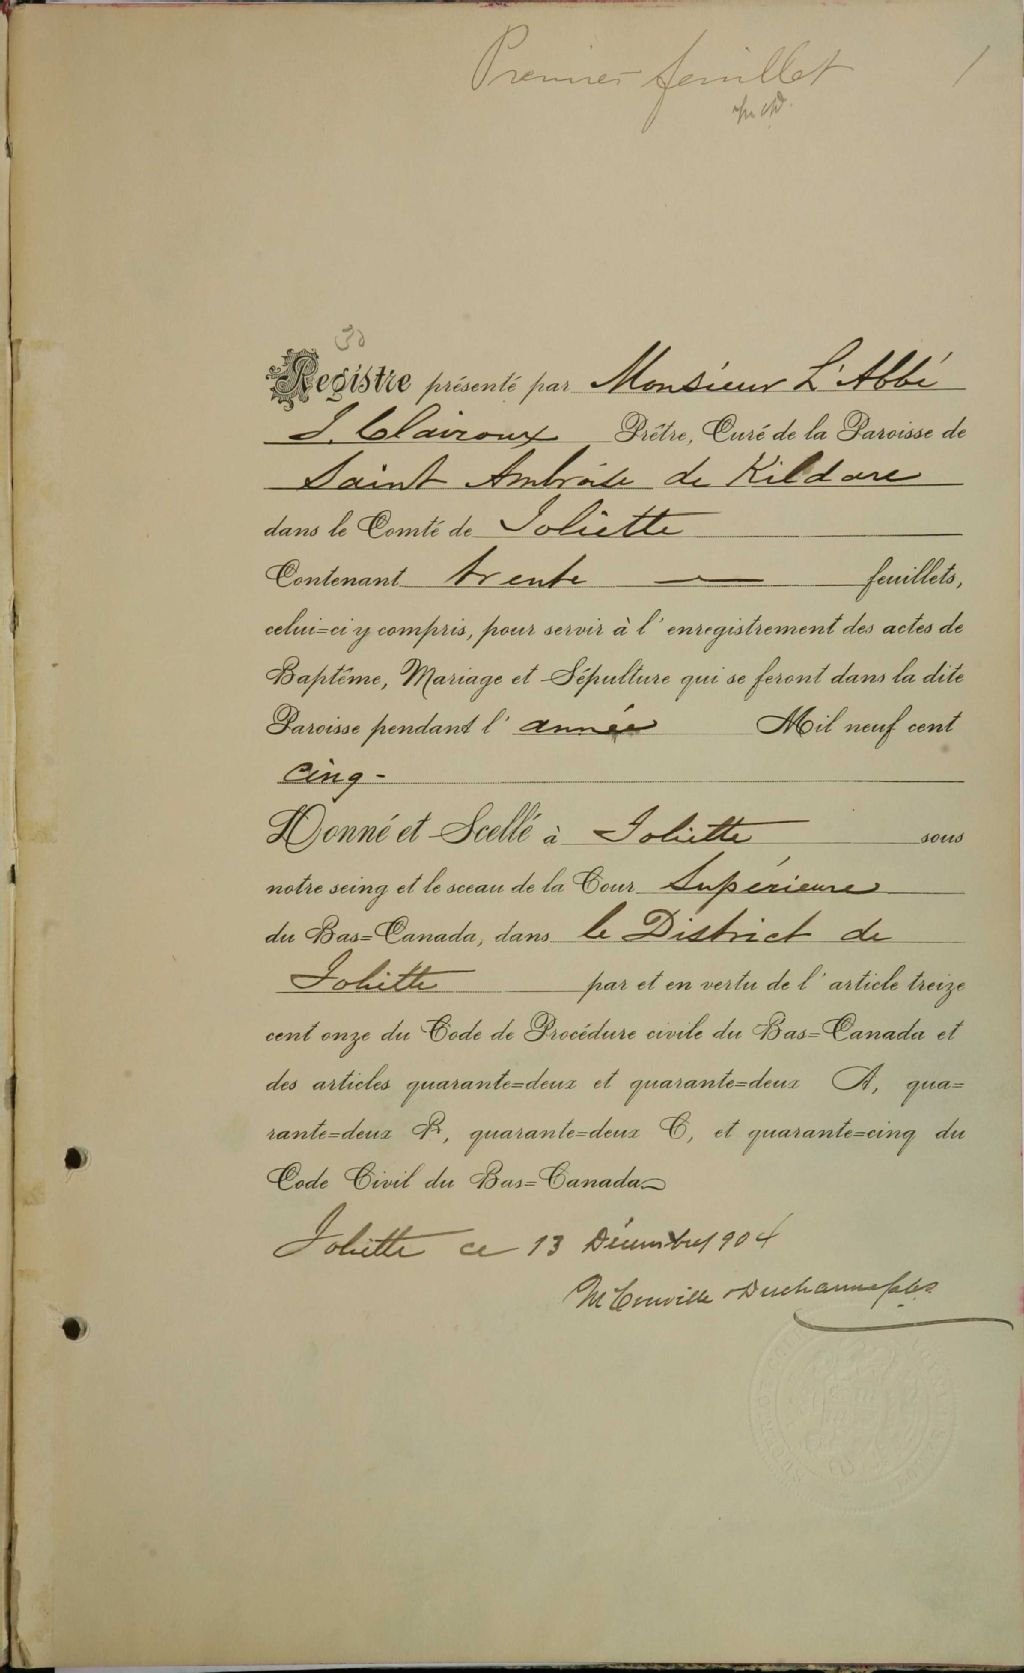 Premier feuillet 1
30
Registre présenté par Monsieur L'Abbé
J. Clairoux Prêtre, Curé de la Paroisse de
Saint Ambroise de Kildare
dans le Comté de Joliette
Contenant trente — feuillets,
celui=ci y compris, pour servir à l'enregistrement des actes de
Baptême, Mariage et Sépulture qui se feront dans la dite
Paroisse pendant l'année Mil neuf cent
cinq -
Donné et Scellé à Joliette sous
notre seing et le sceau de la Cour Supérieure
du Bas=Canada, dans le District de
Joliette par et en vertu de l'article treize
cent onze du Code de Procédure civile du Bas=Canada et
des articles quarante=deux et quarante=deux A, qua=
rante=deux B, quarante=deux C, et quarante=cinq du
Code Civil du Bas=Canada
Joliette ce 13 Décembre 1904